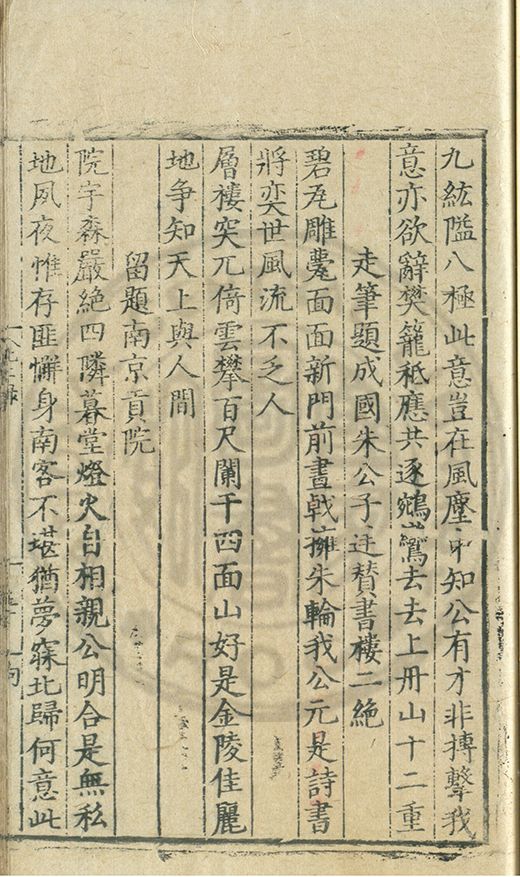 九紘隘八極此意豈在風塵中知公有才非搏擊我
意亦欲辭樊籠秪應共逐鵷鸞去去上丹山十二重
走筆題成國朱公子廷賛書樓二絶
碧瓦雕甍面面新門前畫戟擁朱輪我公元是詩書
將奕世風流不乏人
層樓突兀倚雲攀百尺闌干四面山好是金陵佳麗
地争知天上與人間
留題南京貢院
院宇森嚴絶四隣暮堂燈火自相親公明合是無私
地夙夜惟存匪懈身南客不堪猶夢寐北歸何意此